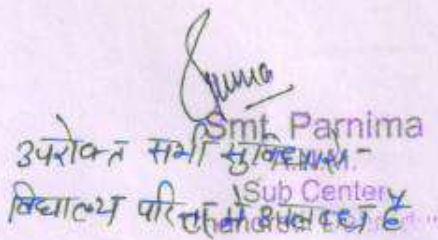 Smt. Parnima
उपरोक्त सभी सुविधायें -
Sub Center
विद्यालय परिसर में उपलब्ध है